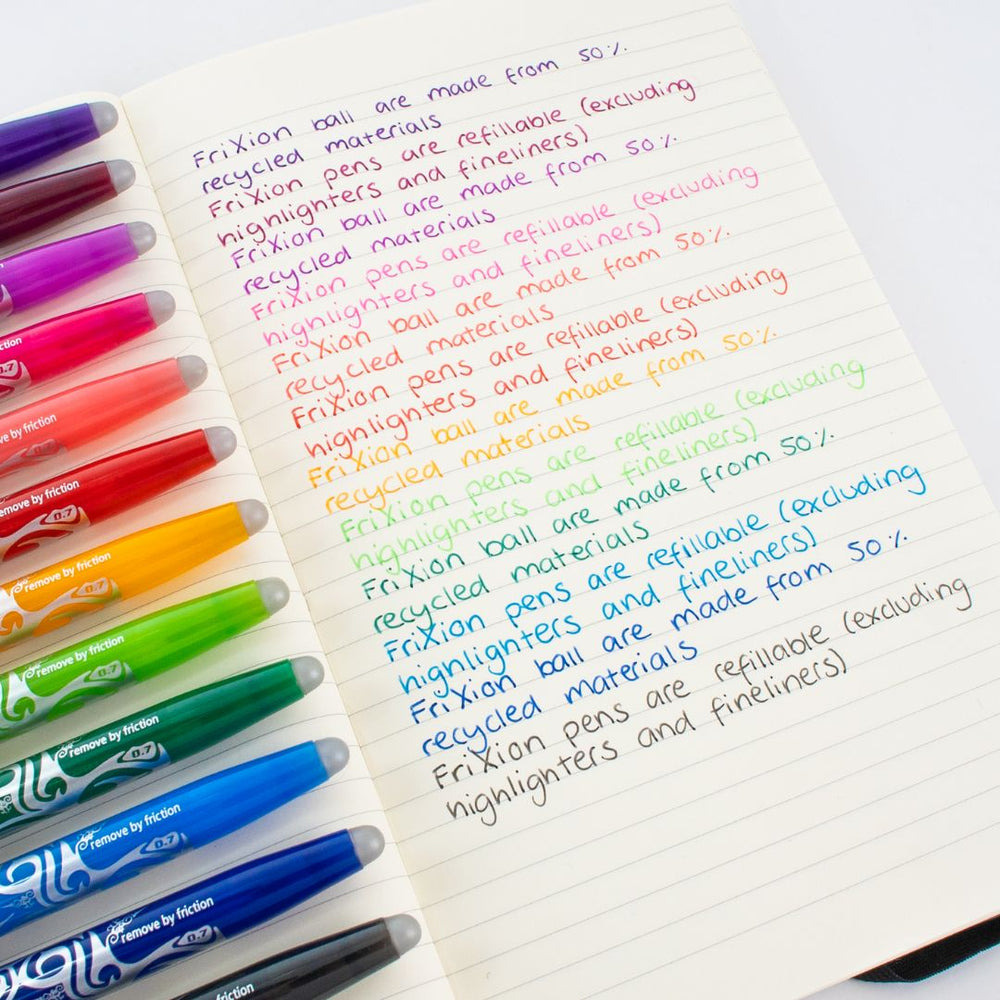 FriXion ball are made from 50%
recycled materials
FriXion pens are refillable (excluding
highlighters and fineliners)
FriXion ball are made from 50%
recycled materials
FriXion pens are refillable (excluding
highlighters and fineliners)
FriXion ball are made from 50%
recycled materials
FriXion pens are refillable (excluding
highlighters and fineliners)
FriXion ball are made from 50%
recycled materials
FriXion pens are refillable (excluding
highlighters and fineliners)
FriXion ball are made from 50%
recycled materials
FriXion pens are refillable (excluding
highlighters and fineliners)
FriXion ball are made from 50%
recycled materials
FriXion pens are refillable (excluding
highlighters and fineliners)
0.7
by friction
remove by friction
0.7
remove by friction
0.7
remove by friction
0.7
remove by friction
0.7
remove by friction
0.7
remove by friction
0.7
friction